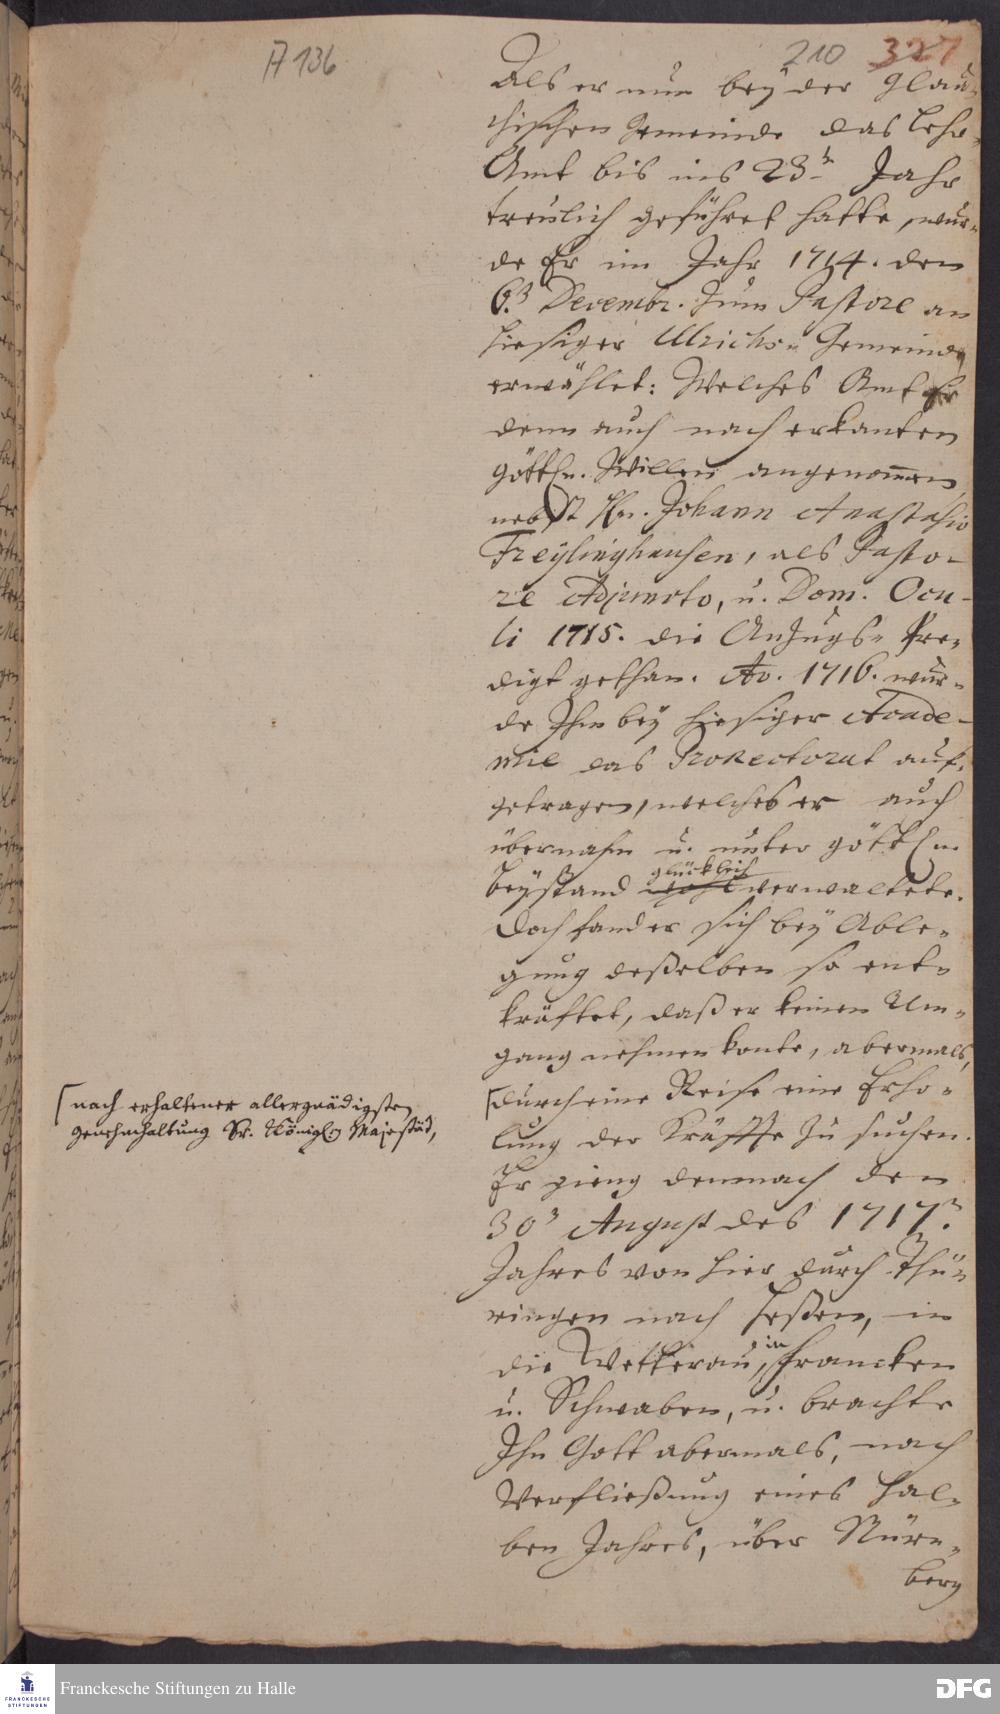 A 136
210 327
Als er nun bey der Glau-
chischen Gemeinde das Lehr-
Amt bis ins 23.t Jahr
treulich geführet hatte, wur-
de Er im Jahr 1714. den
6.t Decembr. zum Pastore an
hiesiger Ulrichs- Gemeinde
erwählet: Welches Amt Er
denn auch nach erkanten
göttln. Willen angenom̅en
nebst Hn. Johann Anastasio
Freylinghausen, als Pasto-
re Adjuncto, u. Dom. Ocu-
li 1715. die Anzugs- Pre-
digt gethan. Ao. 1716. wur-
de Ihm bey hiesiger Acade-
mie das Prorectorat auf-
getragen, welches er auch
übernahm u. unter göttlm
glücklich
Beystand wohl verwaltete.
Doch fand er sich bey Able-
gung deßelben so ent-
kräftet, daß er keinen Um-
gang nehmen konte, abermals,
[nach erhaltener allergnädigsten
Genehmhaltung Sr. Königl. Majestät,
[durch eine Reise eine Erho-
lung der Kräffte zu suchen.
Er gieng demnach den
30t August des 1717t.
Jahres von hier durch Thü-
ringen nach Heßen, in
die Wetterau, in Francken
u. Schwaben, u. brachte
Ihn Gott abermals, nach
Verfließung eines hal-
ben Jahres, über Nürn-
berg
FRANCKESCHE
STIFTUNGEN
Franckesche Stiftungen zu Halle
DFG